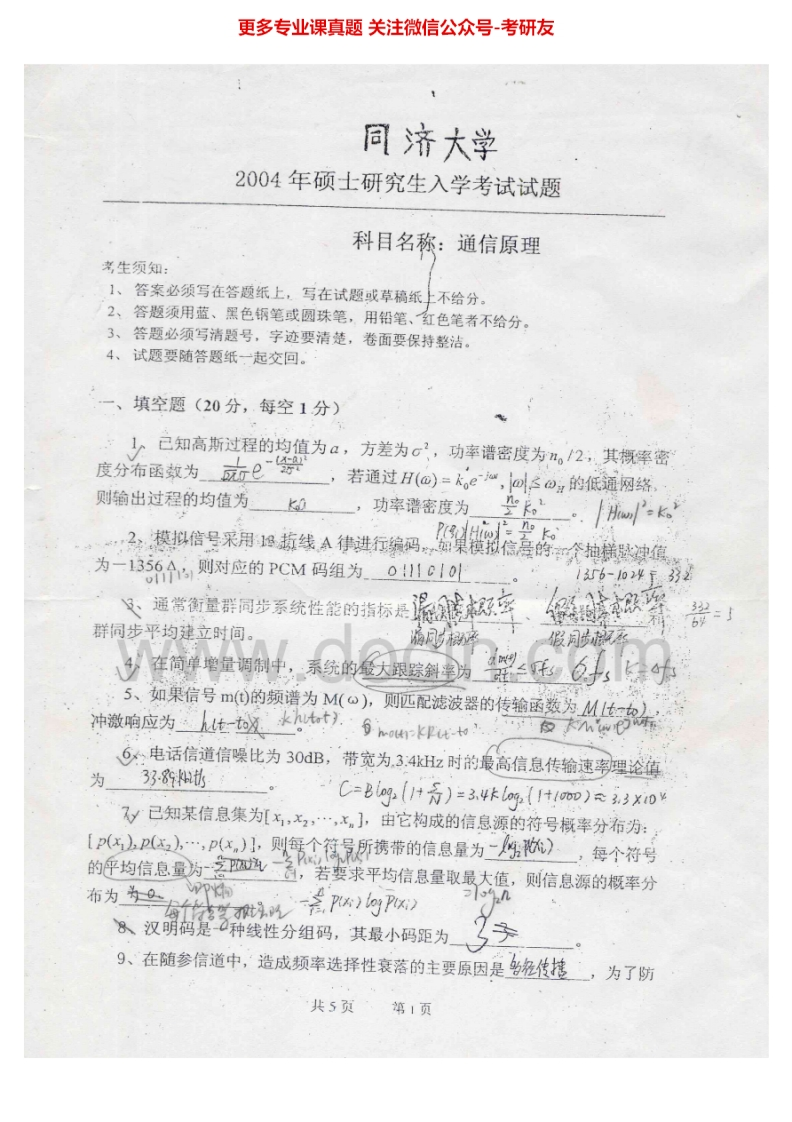 更多专业课真题 关注微信公众号-考研友
同济大学
2004 年硕士研究生入学考试试题
科目名称：通信原理
考生须知：
1、 答案必须写在答题纸上，写在试题或草稿纸上不给分。
2、 答题须用蓝、黑色钢笔或圆珠笔，用铅笔、红色笔者不给分。
3、 答题必须写清题号，字迹要清楚，卷面要保持整洁。
4、 试题要随答题纸一起交回。
一、填空题（20 分，每空 1 分）
1、已知高斯过程的均值为a，方差为σ²，功率谱密度为n₀/2，其概率密
度分布函数为 1/√2πσ e^-(x-a)²/2σ² ，若通过H(ω) = k₀e^-jωt, |ω| ≤ ω_H 的低通网络，
则输出过程的均值为 k₀a ，功率谱密度为 n₀/2 k₀² 。 |H(ω)|²=K₀²
P(ω)|H(ω)|² = n₀/2 K₀²
2、模拟信号采用 13 折线 A 律进行编码，如果模拟信号的一个抽样脉冲值
为－1356Δ，则对应的 PCM 码组为 01110101 。 1356-1024=332
3、通常衡量群同步系统性能的指标是 漏同步概率 、 假同步概率 和 332/64=5
群同步平均建立时间。
漏同步概率 假同步概率
4、在简单增量调制中，系统的最大跟踪斜率为 dm(t)/dt ≤ σfs σfs K=σfs
5、如果信号 m(t)的频谱为 M(ω)，则匹配滤波器的传输函数为 M(t-t₀) ，
冲激响应为 h(t-t₀) 。 kh(t₀-t)
6、电话信道信噪比为 30dB，带宽为 3.4kHz 时的最高信息传输速率理论值
为 33.89kbit/s 。 C=Blog₂(1+S/N)=3.4Klog₂(1+1000)≈3.3×10⁴
7、已知某信息集为[x₁,x₂,⋯,xₙ]，由它构成的信息源的符号概率分布为：
[p(x₁),p(x₂),⋯,p(xₙ)]，则每个符号所携带的信息量为 -log₂P(xi) ，每个符号
的平均信息量为 ，若要求平均信息量取最大值，则信息源的概率分
布为 -Σ P(xi)logP(xi) =log₂n
8、汉明码是一种线性分组码，其最小码距为 3 。
9、在随参信道中，造成频率选择性衰落的主要原因是 多径传播 ，为了防
共 5 页 第 1 页
www.docin.com